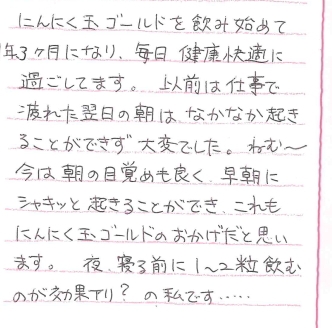 にんにく玉ゴールドを飲み始めて
年3ヶ月になり、毎日 健康快適に
過ごしてます。 以前は仕事で
疲れた翌日の朝は なかなか起き
ることができず 大変でした。 ねむ〜
今は 朝の目覚めも良く、早朝に
シャキッと 起きることができ、これも
にんにく玉ゴールドのおかげだと思い
ます。 夜、寝る前に 1〜2粒飲む
のが効果アリ? の私です……